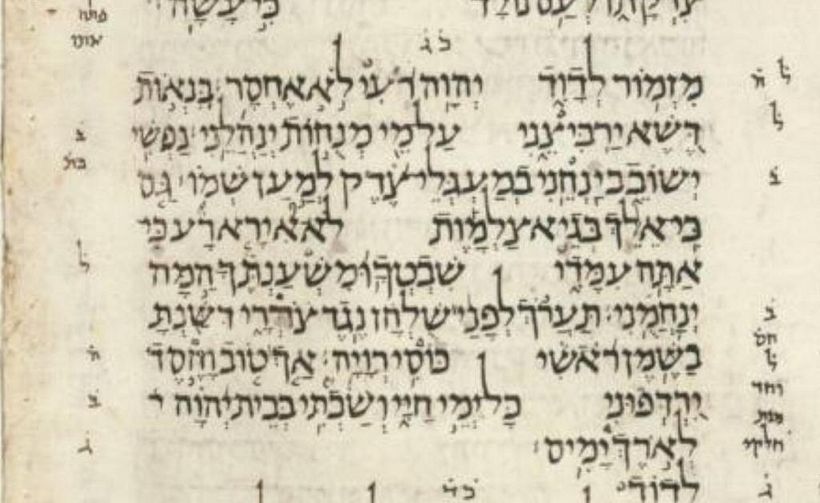 צִדְקָתוֹ לְעַם נוֹלָד כִּי עָשָׂה׃
כג
מִזְמוֹר לְדָוִד יְהוָה רֹעִי לֹא אֶחְסָר׃ בִּנְאוֹת
דֶּשֶׁא יַרְבִּיצֵנִי עַל מֵי מְנֻחוֹת יְנַהֲלֵנִי׃ נַפְשִׁי
יְשׁוֹבֵב יַנְחֵנִי בְמַעְגְּלֵי צֶדֶק לְמַעַן שְׁמוֹ׃ גַּם
כִּי אֵלֵךְ בְּגֵיא צַלְמָוֶת לֹא אִירָא רָע כִּי
אַתָּה עִמָּדִי שִׁבְטְךָ וּמִשְׁעַנְתֶּךָ הֵמָּה
יְנַחֲמֻנִי׃ תַּעֲרֹךְ לְפָנַי שֻׁלְחָן נֶגֶד צֹרְרָי דִּשַּׁנְתָּ
בַשֶּׁמֶן רֹאשִׁי כּוֹסִי רְוָיָה׃ אַךְ טוֹב וָחֶסֶד
יִרְדְּפוּנִי כָּל יְמֵי חַיָּי וְשַׁבְתִּי בְּבֵית יְהוָה
לְאֹרֶךְ יָמִים׃
כד
לְדָוִד